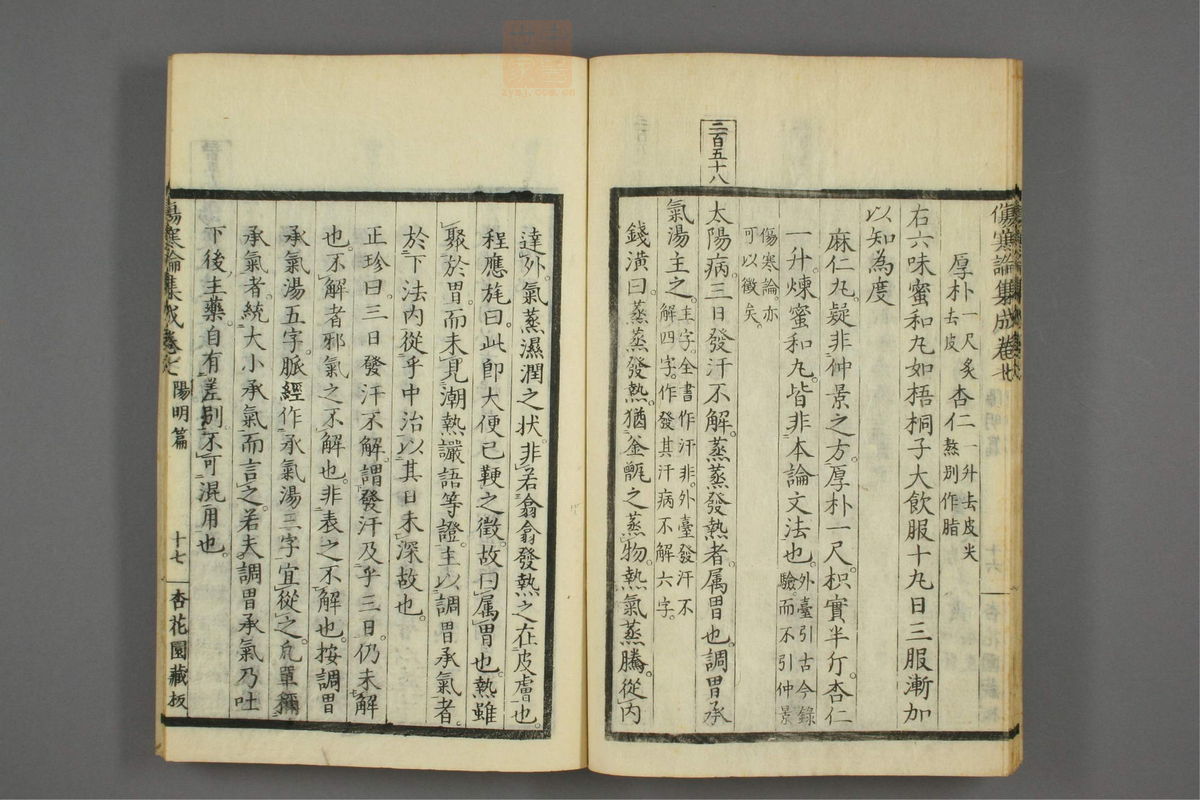 傷寒論集成卷七
厚朴一尺炙去皮 杏仁一升去皮尖熬別作脂
右六味蜜和丸如梧桐子大飲服十丸日三服漸加
以知為度
麻仁丸疑非仲景之方厚朴一尺枳實半斤杏仁
一升煉蜜和丸皆非本論文法也外臺引古今錄驗而不引仲景
傷寒論亦可以徵矣
二百五十八
太陽病三日發汗不解蒸蒸發熱者属胃也調胃承
氣湯主之主字全書作汗非外臺發汗不解四字作發其汗病不解六字
錢潢曰蒸蒸發熱猶釜甑之蒸物熱氣蒸騰從内
達外氣蒸濕潤之状非若翕翕發熱之在皮膚也
程應旄曰此即大便已鞕之徵故曰属胃也熱雖
聚於胃而未見潮熱讝語等證主以調胃承氣者
於下法内從乎中治以其日未深故也
正珍曰三日發汗不解謂發汗及乎三日仍未解
也不解者邪氣之不解也非表之不解也按調胃
承氣湯五字脈經作承氣湯三字宜從之凡單稱
承氣者統大小承氣而言之若夫調胃承氣乃吐
下後主藥自有差別不可混用也
傷寒論集成卷七
陽明篇
十七
杏花園藏板